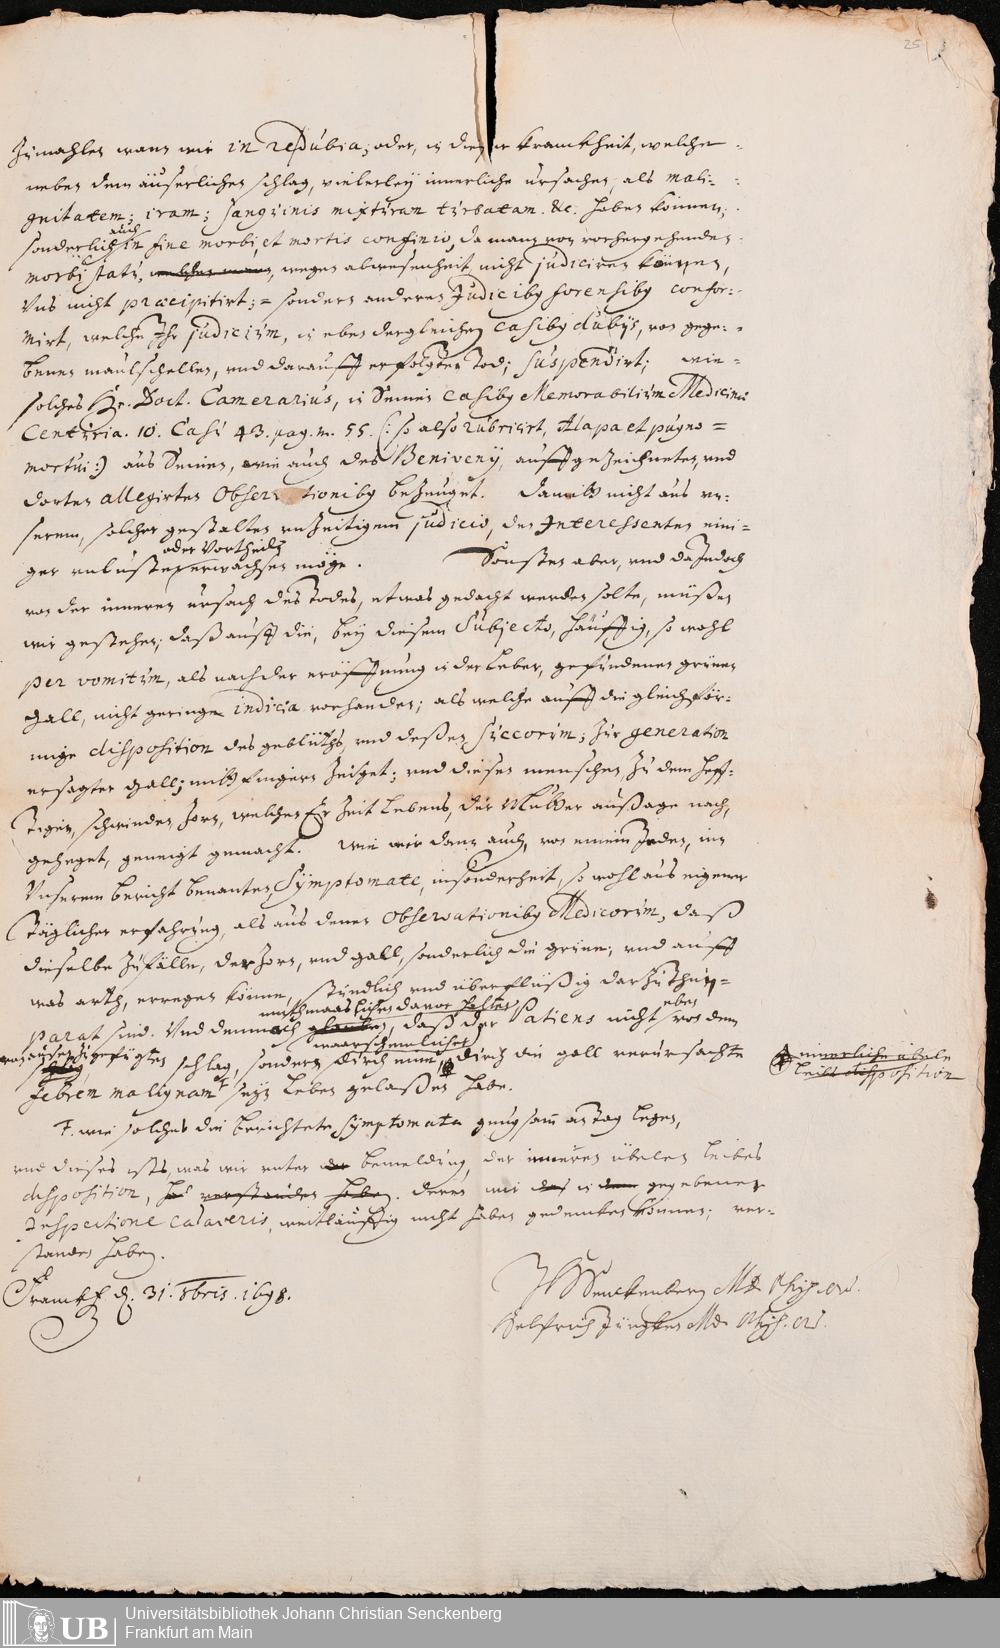 25
Zumahlen wann wir in re dubia; oder, in dieser kranckheit, welche
neben dem äuserlichen schlag, vielerley innerliche ursachen, als mali-
gnitatem; iram; sanguinis mixturam turbatam. &c. haben können;
auch
sonderlich in fine morbi, et mortis confinio, da man von vorhergehenden
morbi statu, welchen mann, wegen abwesenheit, nicht judiciren können,
Uns nicht præcipitirt; = sondern anderen Judicibq forensibq confor-
mirt, welche Ihr judicium, in eben dergleichen casibq dubijs, von gege-
benen maulschellen, und darauff erfolgten Tod; suspendirt; wie
solches Hr. Doct. Camerarius, in Seinen casibq Memorabilium Medicinæ
Centuria. 10. Casu 43. pag. m. 55. (: so also rubricirt, Alapa et pugno =
mortui:) aus Seinen, wie auch des Benivenij, auffgezeichneten, und
dorten allegirten Observationibq bezeuget. Damitt nicht aus un-
serem, solcher gestalten unzeitigem judicio, den Interessenten eini-
oder Vortheilh
ger unlusten erwachsen möge. Sonsten aber, und da Jedoch
von der inneren ursach des Todes, etwas gedacht werden solte, müßen
wir gestehen; daß auff die, bey diesem Subjecto, häuffig, so wohl
per vomitum, als nach der eröffnung in der Leber, gefundenen grünen
Gall, nicht geringe indicia vorhanden; als welche auff die gleichför-
mige disposition des geblüths, und deßen succorum; zur generation
ersagter Gall; mitt fingern zeiget; und diesen menschen, zu dem heff-
tigen, schwinden Zorn, welchen Er Zeit Lebens, der Mutter außage nach,
geheget, geneigt gemacht. Wie wir dann auch, von einem Jeden, in
Unserem bericht benanten Symptomate, insonderheit, so wohl aus eigener
Täglicher erfahrung, als aus denen Observationibq Medicorum, daß
dieselbe Zufälle, der Zorn, und gall, sonderlich die grüne; und auff
was arth, erregen könne, stündlich und überflüßig darzuthun
muthmaaslichen davor halten eben
parat sind. Und demnach glauben, daß der Patiens nicht von dem
waarscheinlicher
zugefügten schlag, sondern durch eine, durch die gall verursachte
innerliche übele
leibs disposition
febrem malignam † sein Leben gelaßen habe.
†. wie solches die berichtete Symptomata gnugsam an Tag legen,
und dieses ists, was wir unter der bemeldung, der inneren übelen leibes
disposition, has verstanden haben. deren wir das in dem gegebenen
Inspectione cadaveris, weitläuffig nicht haben gedencken können; ver-
standen haben.
Franckf. d. 31. 8bris. 1698.
JH Senckenberg MD. Phys. ord.
Helfrich Jüngken MD. Phys. ord.
UB
Universitätsbibliothek Johann Christian Senckenberg
Frankfurt am Main